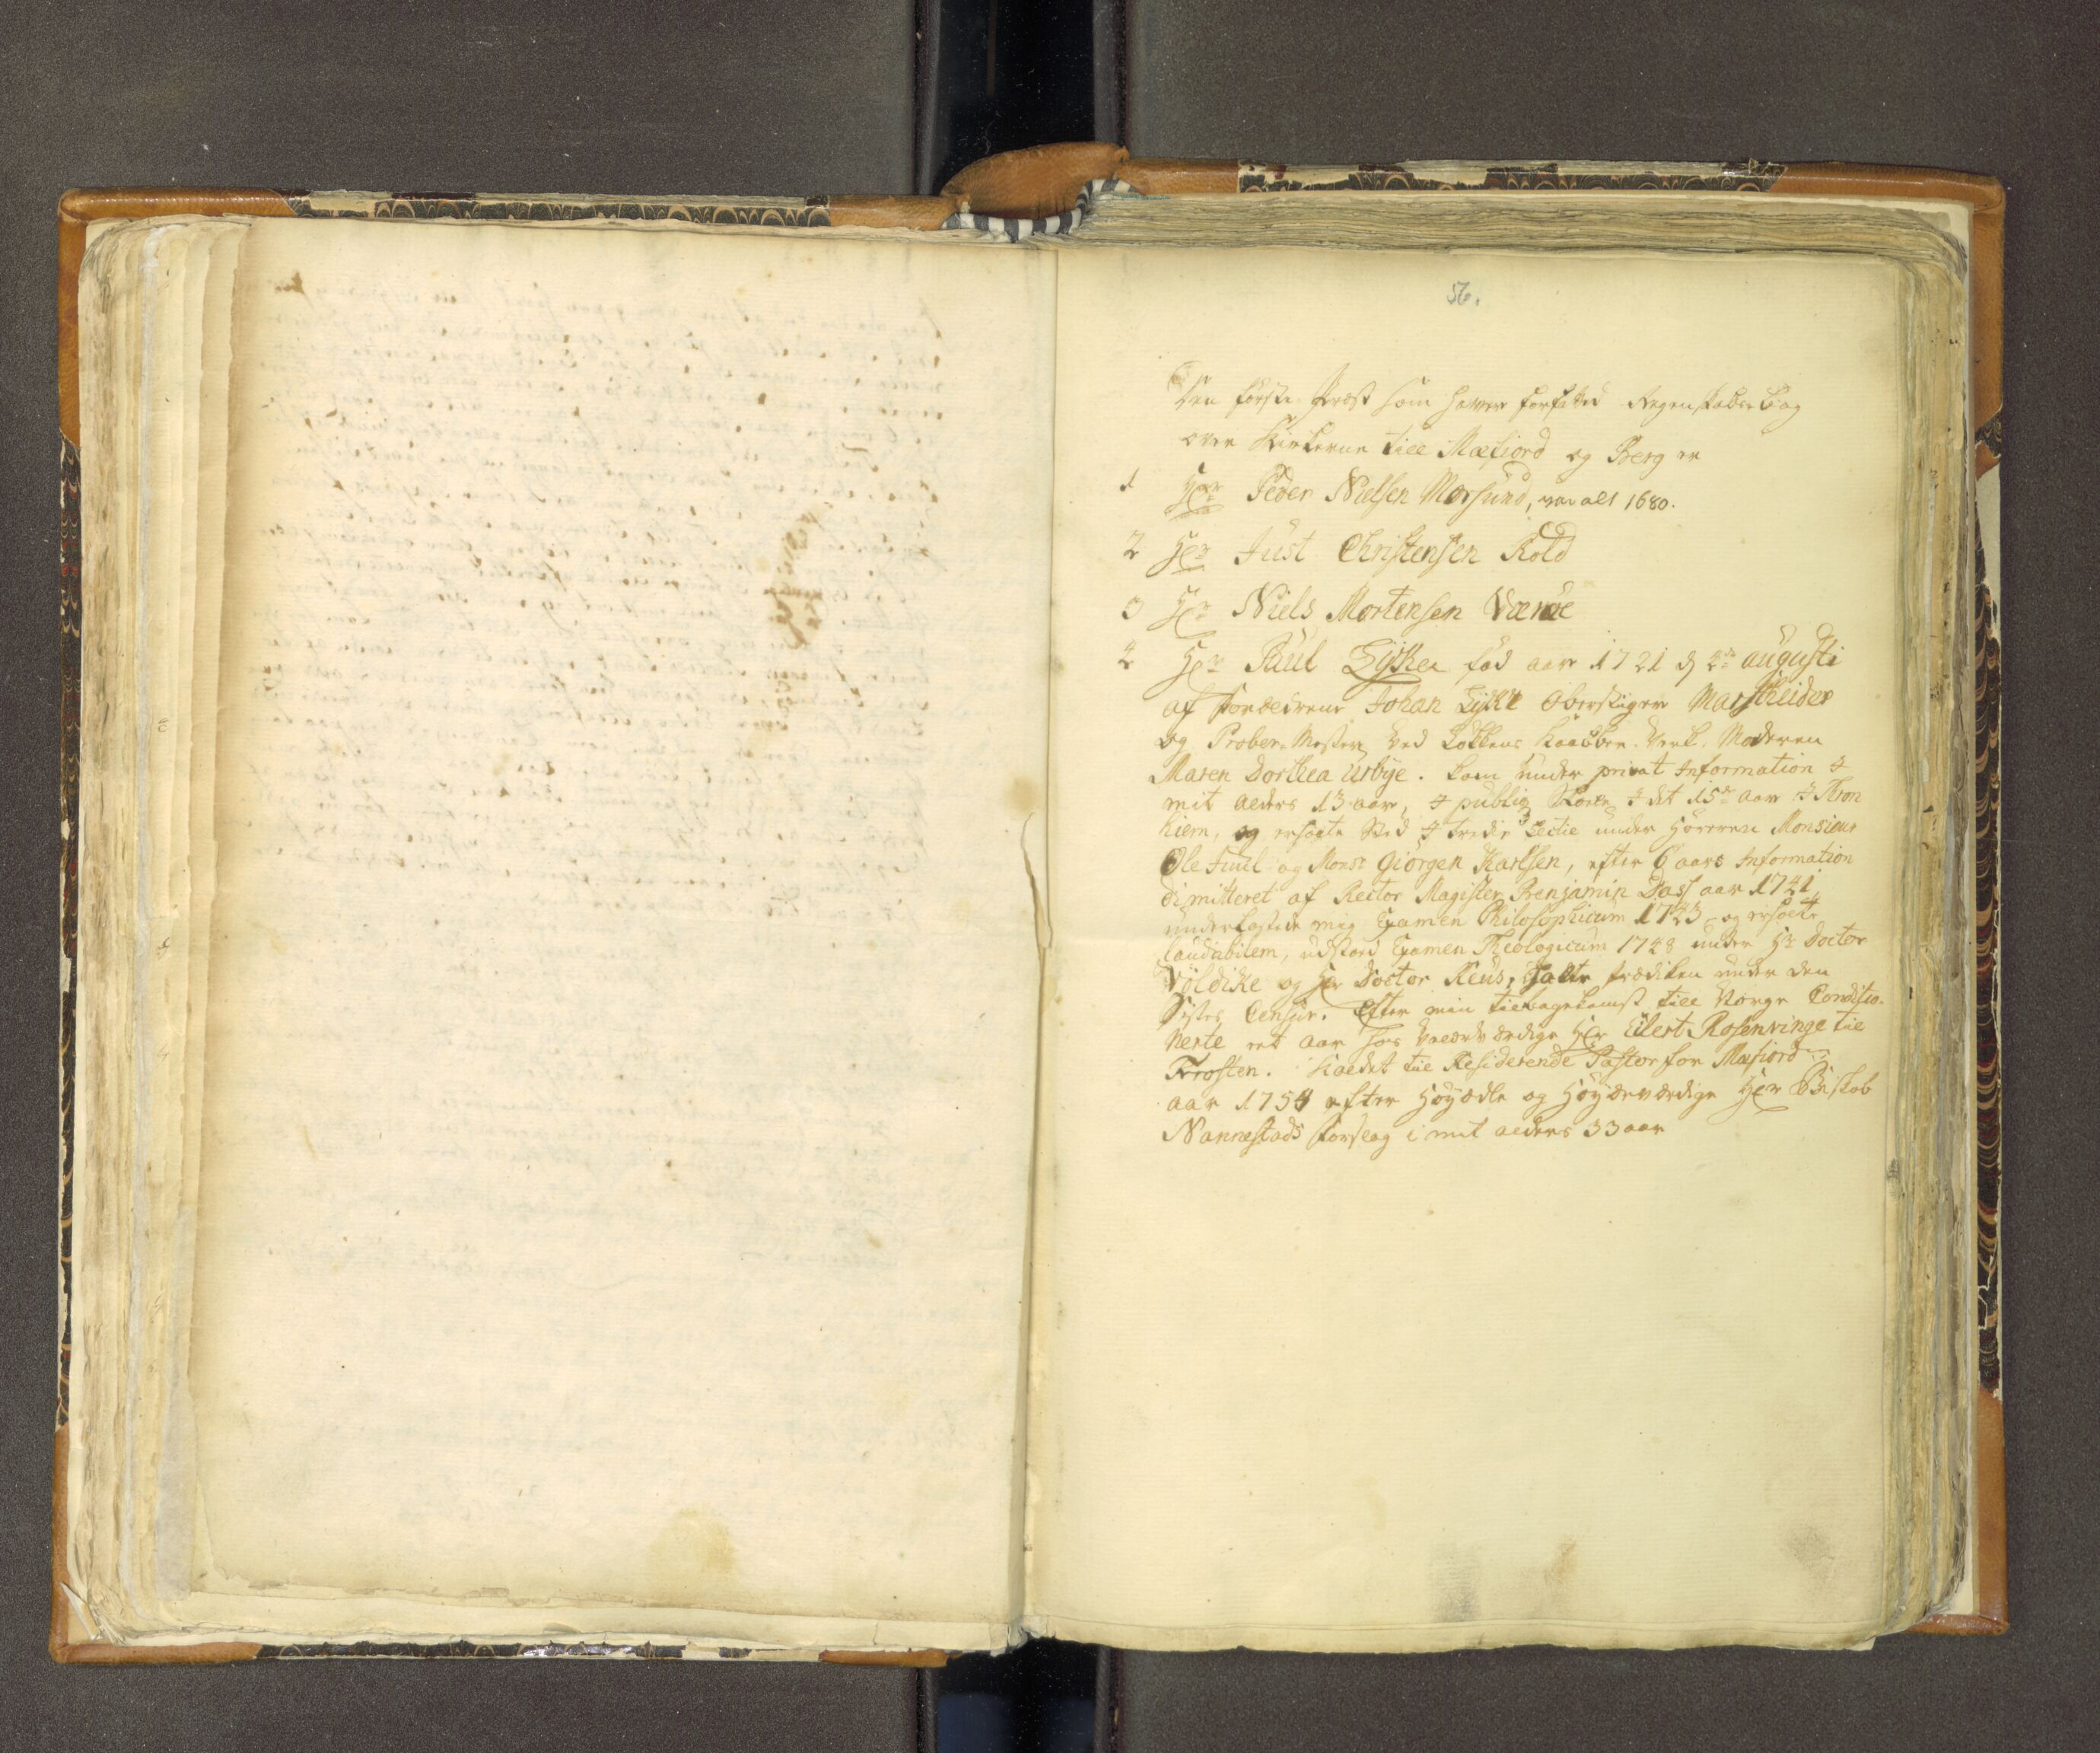 56.
Den første Præst som haver forfatted Regenskabs bog
over Kirkerne till Mæfiord og Berg er
1 Her Peder Nielsen Morsund, var alt 1680.
2 Her Just Christensen Kold
3 Hr Niels Mortensen Værøe
4 Her Paul Lyker fød aar 1721 d 4de augusti
af Forældrene Johan Lyke Oberstiger Marscheider
og Prober Mester ved Løkkens Kaabber Verk. Moderen
Maren Dorthea Urbye. kom under privat Information i
mit alders 13 aar, i publiq Skole i det 15de aar i Tron
hiem, og ersøgte Sted i tredie Lectie under Höreren Monsieur
Ole Juul og Monsr Giörgen Karlsen, efter 6 aars Information
dimitteret af Rector Magister Benjamin Dass aar 1741,
underkastede mig Examen Philosophicum 1743 og erholte
laudabilem, udstoed Examen Theologicum 1748 under Hr Doctor
Völdike og Her Doctor Reus, holte prædiken under den
Sistes Censur. Efter min tilbagekomst till Norge Conditio-
nerte et aar hos Velærværdige Her Eilert Rosenvinge til
Frosten. Kaldet til Residerende Pastor for Mæfiord
aar 1754 efter Höyædle og Höyærværdige Her Biskob
Nannestads Forslag i mit alders 33 aar